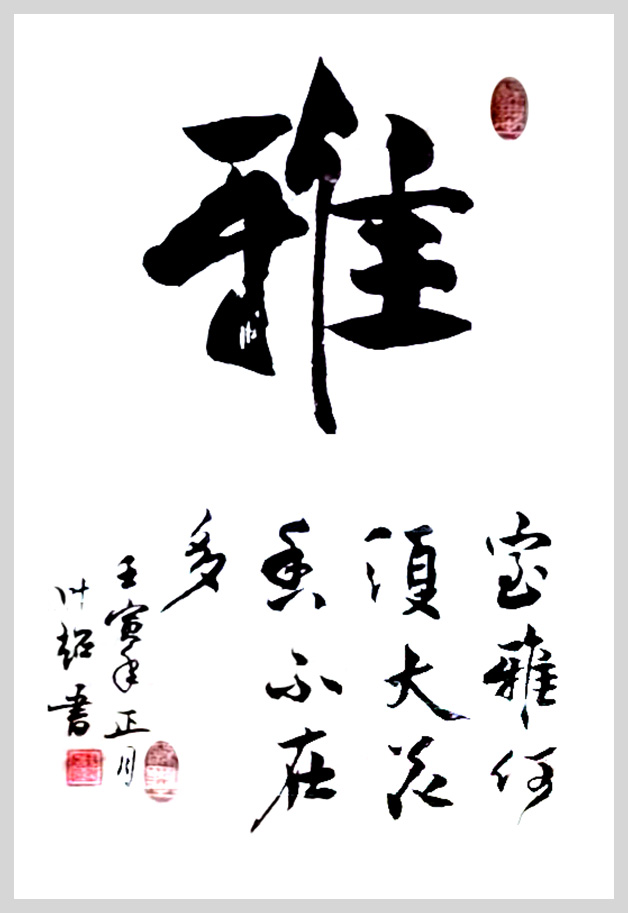 雅
室雅何
須大花
香不在
多
壬寅年正月
書